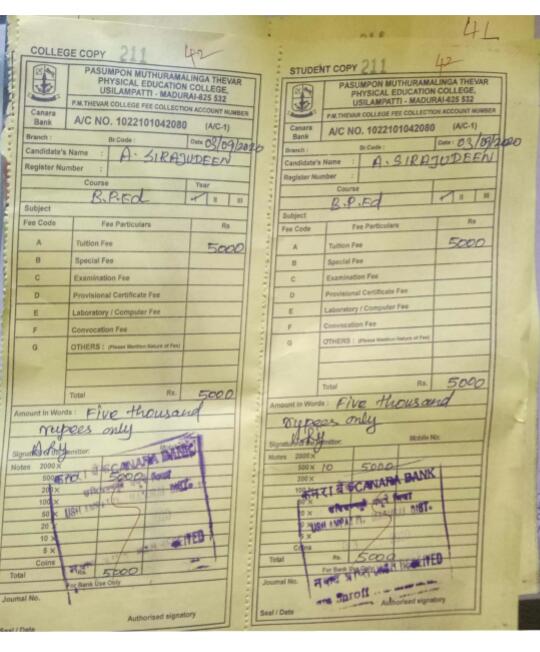 4L
COLLEGE COPY 211 42
PASUMPON MUTHURAMALINGA THEVAR
PHYSICAL EDUCATION COLLEGE,
USILAMPATTI - MADURAI-625 532
P.M.THEVAR COLLEGE FEE COLLECTION ACCOUNT NUMBER
Canara
Bank
A/C NO. 1022101042080 (A/C-1)
Branch : Br.Code : Date : 03/09/2020
Candidate's Name : A. SIRAJUDEEN
Register Number :
Course Year
B.P.Ed I II III
Subject
Fee Code Fee Particulars Rs
A Tuition Fee 5000
B Special Fee
C Examination Fee
D Provisional Certificate Fee
E Laboratory / Computer Fee
F Convocation Fee
G OTHERS : (Please Mention Nature of Fee)
Total Rs. 5000
Amount in Words : Five thousand
rupees only
Notes 2000 X
500 X 5000
200 X
100 X
50 X
20 X
10 X
5 X
Coins
Total Rs. 5000
For Bank Use Only
Journal No.
Authorised signatory
Seal / Date
CANARA BANK
DIST.
STUDENT COPY 211 42
PASUMPON MUTHURAMALINGA THEVAR
PHYSICAL EDUCATION COLLEGE,
USILAMPATTI - MADURAI-625 532
P.M.THEVAR COLLEGE FEE COLLECTION ACCOUNT NUMBER
Canara
Bank
A/C NO. 1022101042080 (A/C-1)
Branch : Br.Code : Date : 03/09/2020
Candidate's Name : A. SIRAJUDEEN
Register Number :
Course Year
B.P.Ed I II III
Subject
Fee Code Fee Particulars Rs
A Tuition Fee 5000
B Special Fee
C Examination Fee
D Provisional Certificate Fee
E Laboratory / Computer Fee
F Convocation Fee
G OTHERS : (Please Mention Nature of Fee)
Total Rs. 5000
Amount in Words : Five thousand
rupees only
Mobile No:
Notes 2000 X
500 X 10 5000
200 X
100 X
50 X
20 X
10 X
5 X
Coins
Total Rs. 5000
For Bank Use Only
Journal No.
Authorised signatory
Seal / Date
CANARA BANK
DIST.